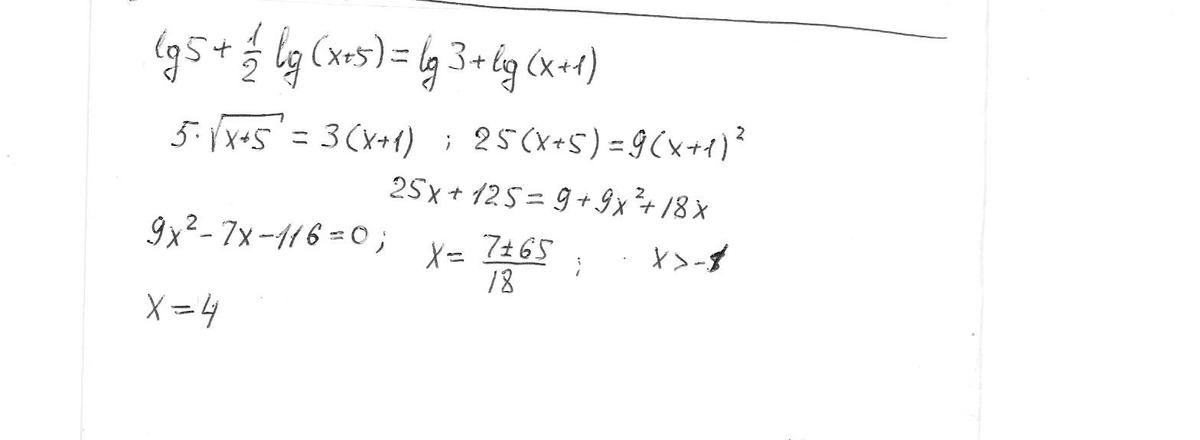 lg5 + 1/2 lg(x+5) = lg3 + lg(x+1)
5·√(x+5) = 3(x+1) ; 25(x+5) = 9(x+1)²
25x + 125 = 9 + 9x² + 18x
9x² - 7x - 116 = 0 ; x = (7±65)/18 ; x > -1
x = 4